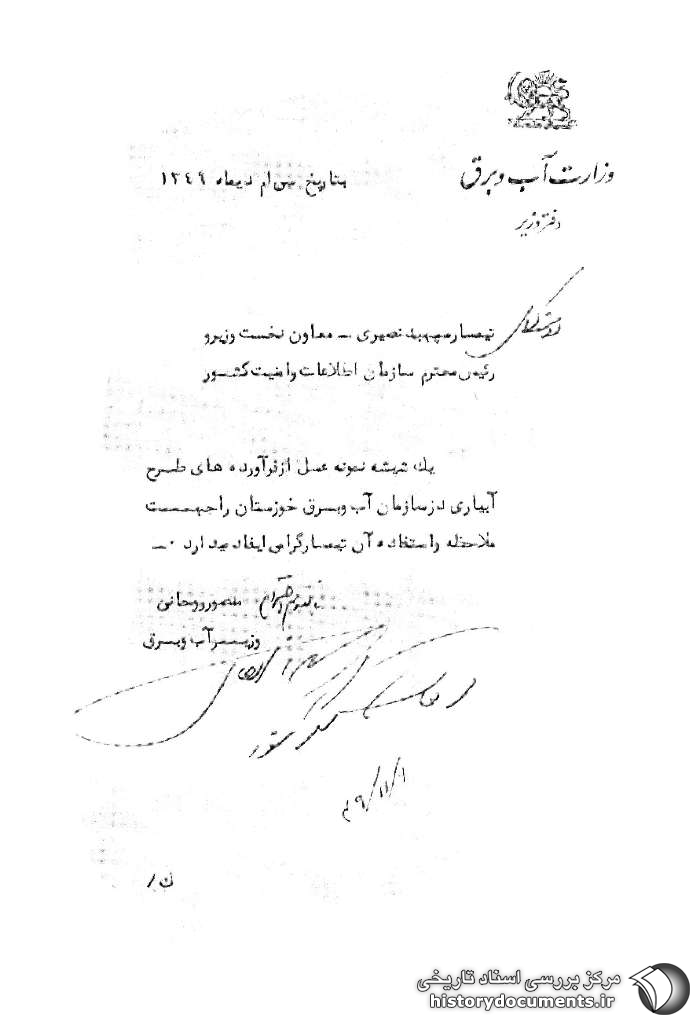 وزارت آب و برق
دفتر وزیر
بتاریخ سی ام دیماه ۱۳۴۹
تیمسار سپهبد نصیری ــ معاون نخست وزیر و
رئیس محترم سازمان اطلاعات و امنیت کشور
یک شیشه نمونه عسل از فرآورده های طرح
آبیاری در سازمان آب و برق خوزستان را جهت
ملاحظه و استفاده آن تیمسار گرامی ایفاد میدارد ۰ــ
با تقدیم احترام منصور روحانی
وزیر آب و برق
۴۹/۱۱/۱
ن/
مرکز بررسی اسناد تاریخی
historydocuments.ir